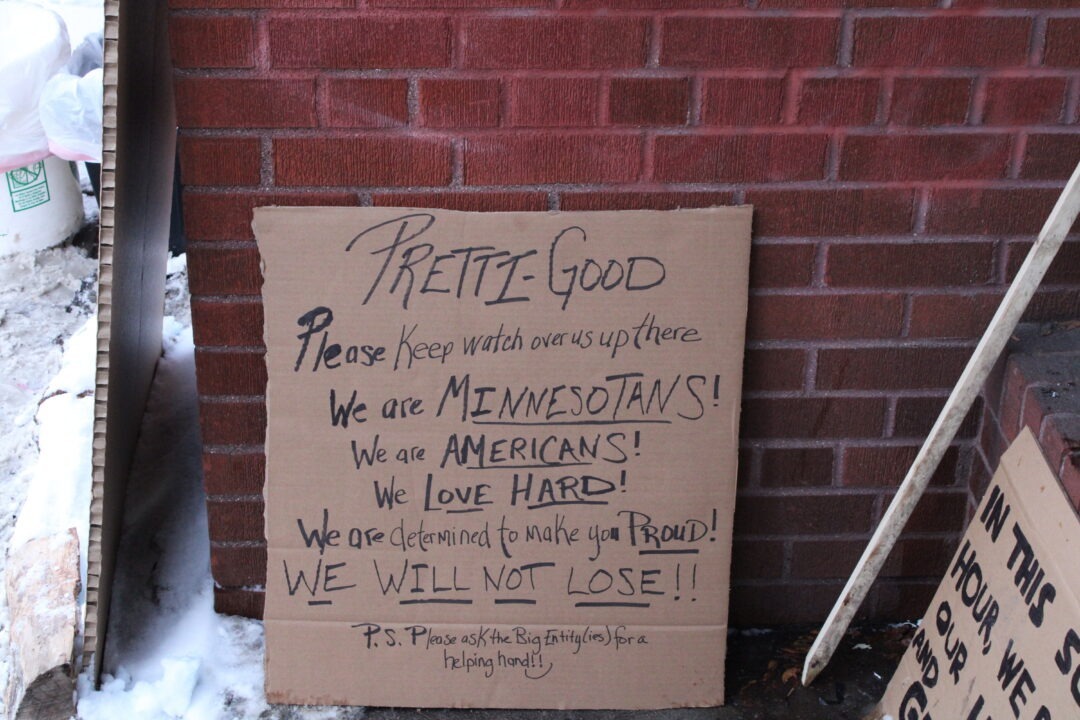 PRETTI-GOOD
Please Keep watch over us up there
We are MINNESOTANS!
We are AMERICANS!
We LOVE HARD!
We are determined to make you PROUD!
WE WILL NOT LOSE!!
P.S. Please ask the Big Entity(ies) for a
helping hand!!
IN THIS
HOUR, WE
OUR
AND